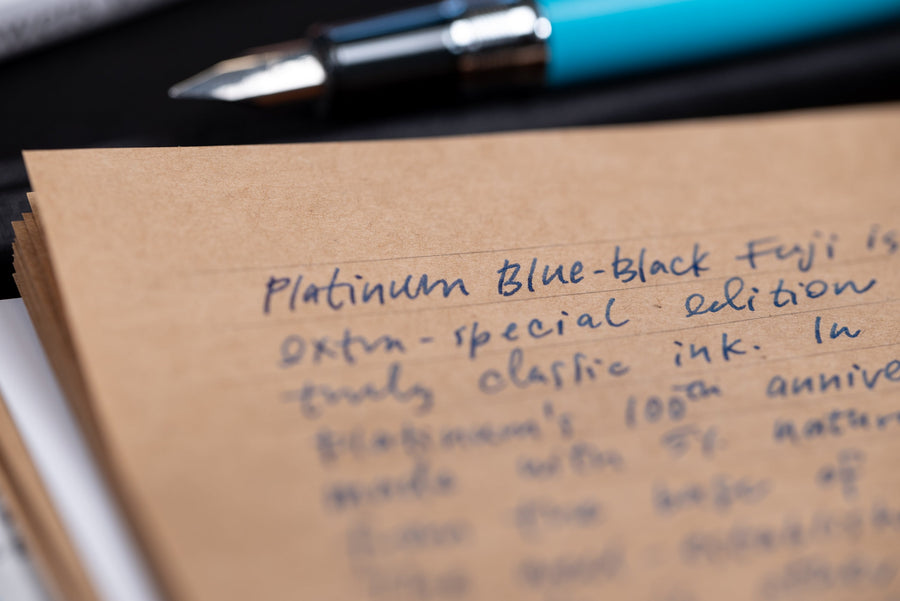 Platinum Blue-Black Fuji is
extra-special edition
truly classic ink. In
Platinum's 100th annive
made with 5% natur
from the base of